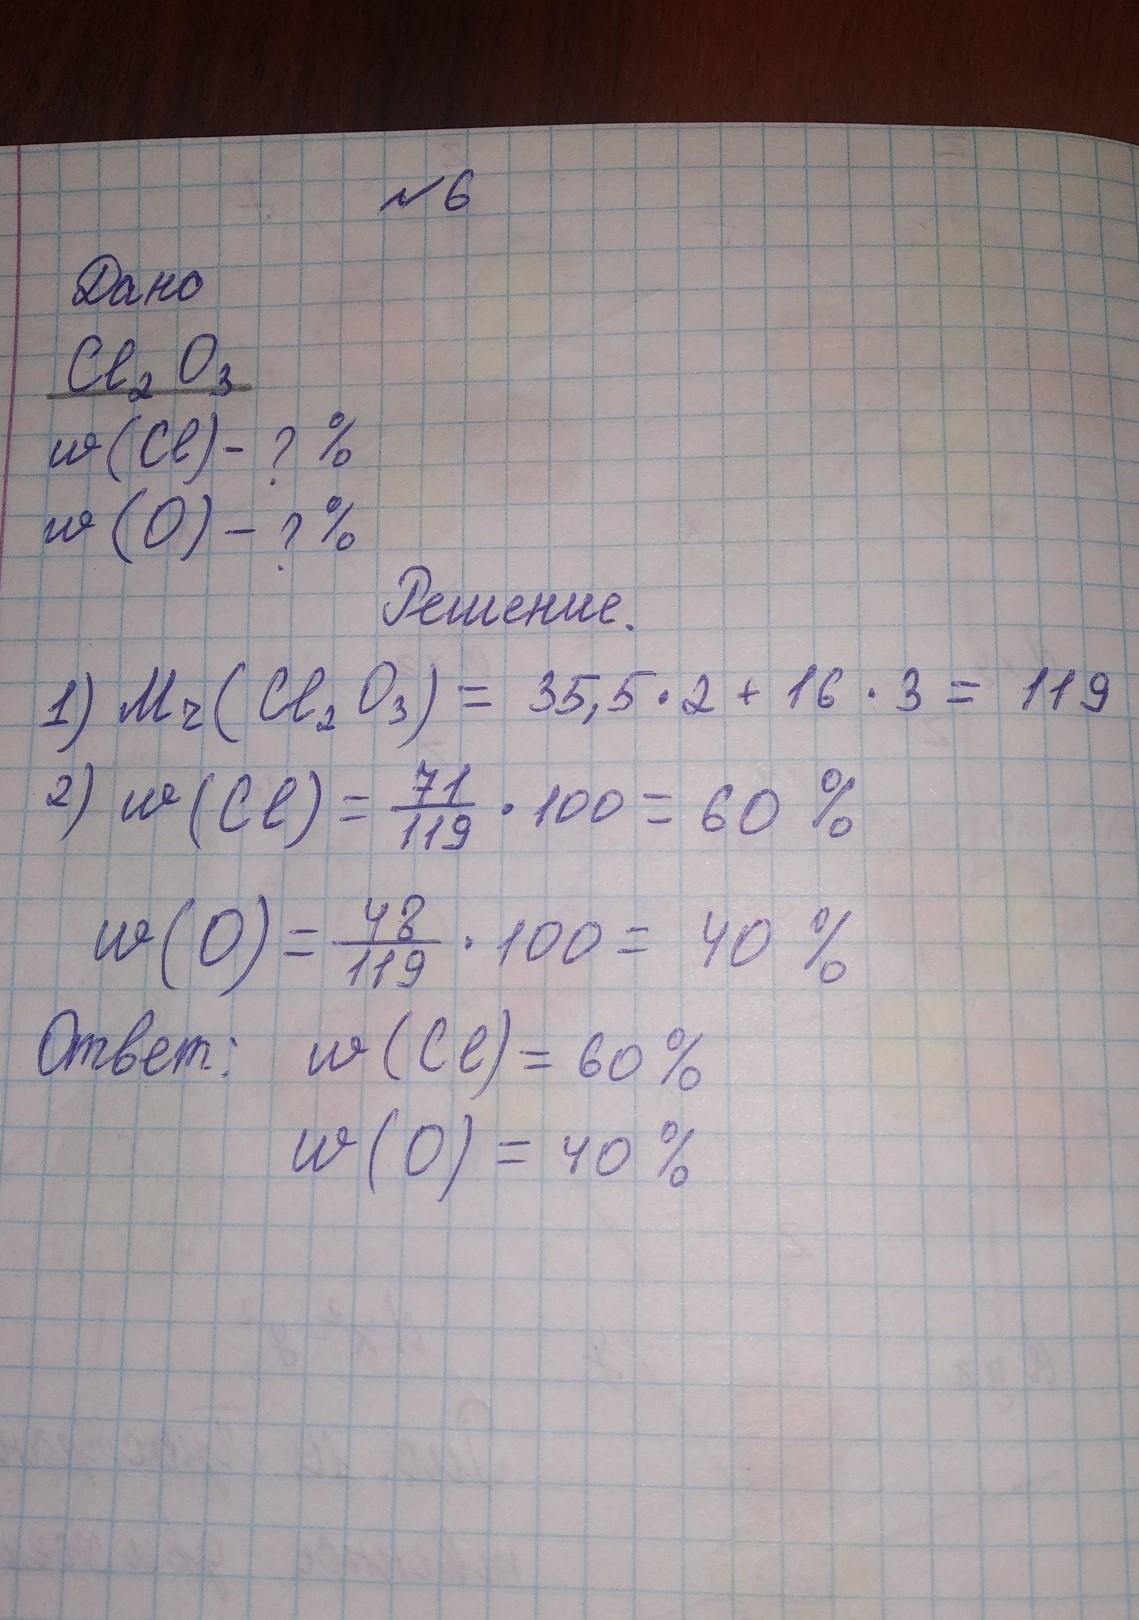 №6
Дано
Cl₂O₃
w(Cl)-?%
w(O)-?%
Решение.
1) Mr(Cl₂O₃) = 35,5·2+16·3 = 119
2) w(Cl) = 71/119 · 100 = 60 %
w(O) = 48/119 · 100 = 40 %
Ответ: w(Cl) = 60%
w(O) = 40%